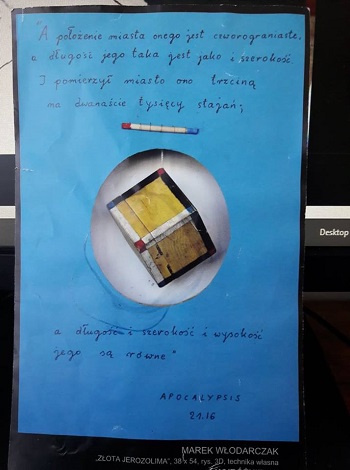 A położenie miasta onego jest czworograniaste,
a długość jego taka jest jako i szerokość
I pomierzył miasto ono trzciną
na dwanaście tysięcy stajań;
a długość i szerokość i wysokość
jego są równe"
APOCALYPSIS
21.16
MAREK WŁODARCZAK
„ZŁOTA JEROZOLIMA", 38 x 54, rys. 3D, technika własna
Desktop